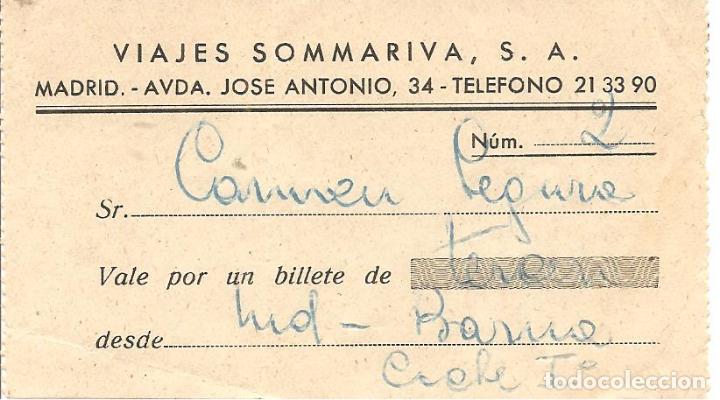 VIAJES SOMMARIVA, S. A.
MADRID. - AVDA. JOSE ANTONIO, 34 - TELEFONO 21 33 90
Núm. 2
Sr. Carmen Segura
Vale por un billete de
desde Md - Barna
Coche
todocoleccion